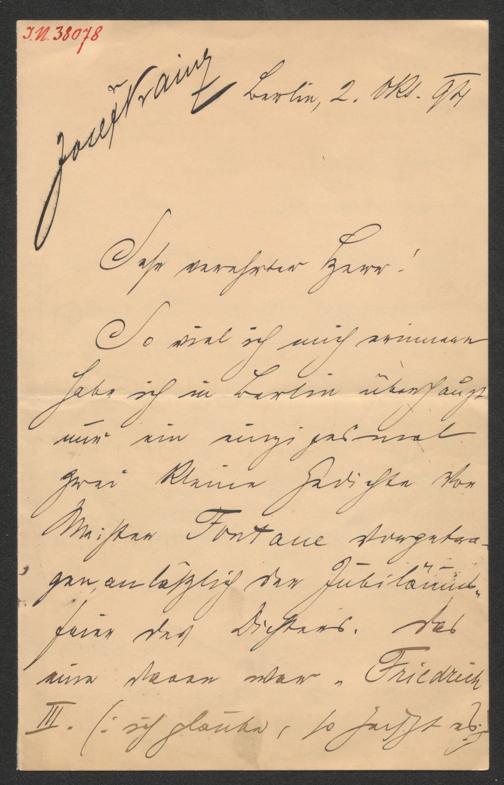 I.N. 38078
Josef Kainz
Berlin, 2. Okt. 94
Sehr verehrter Herr!
So viel ich mich erinnere
habe ich in Berlin überhaupt
nur ein einziges mal
zwei kleine Gedichte von
Meister Fontane vorgetra-
gen, anläßlich der Jubiläums-
feier des Dichters. Das
eine davon war „Friedrich
III. (: ich glaube, so heißt es:)